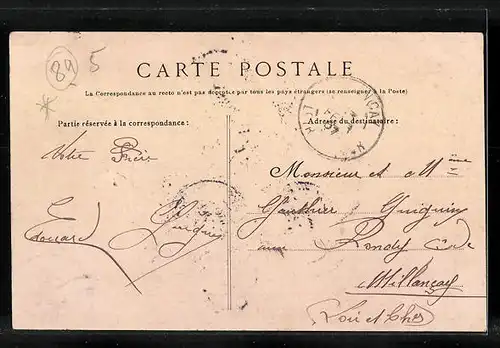 89
5
CARTE POSTALE
La Correspondance au recto n'est pas acceptée par tous les pays étrangers (se renseigner à la Poste)
Partie réservée à la correspondance :
Adresse du destinataire :
Votre Frère
Edouard Guignin
Monsieur et Mme
Gauthier Guignin
aux Rondy Cde
Millançay
Loir et Cher